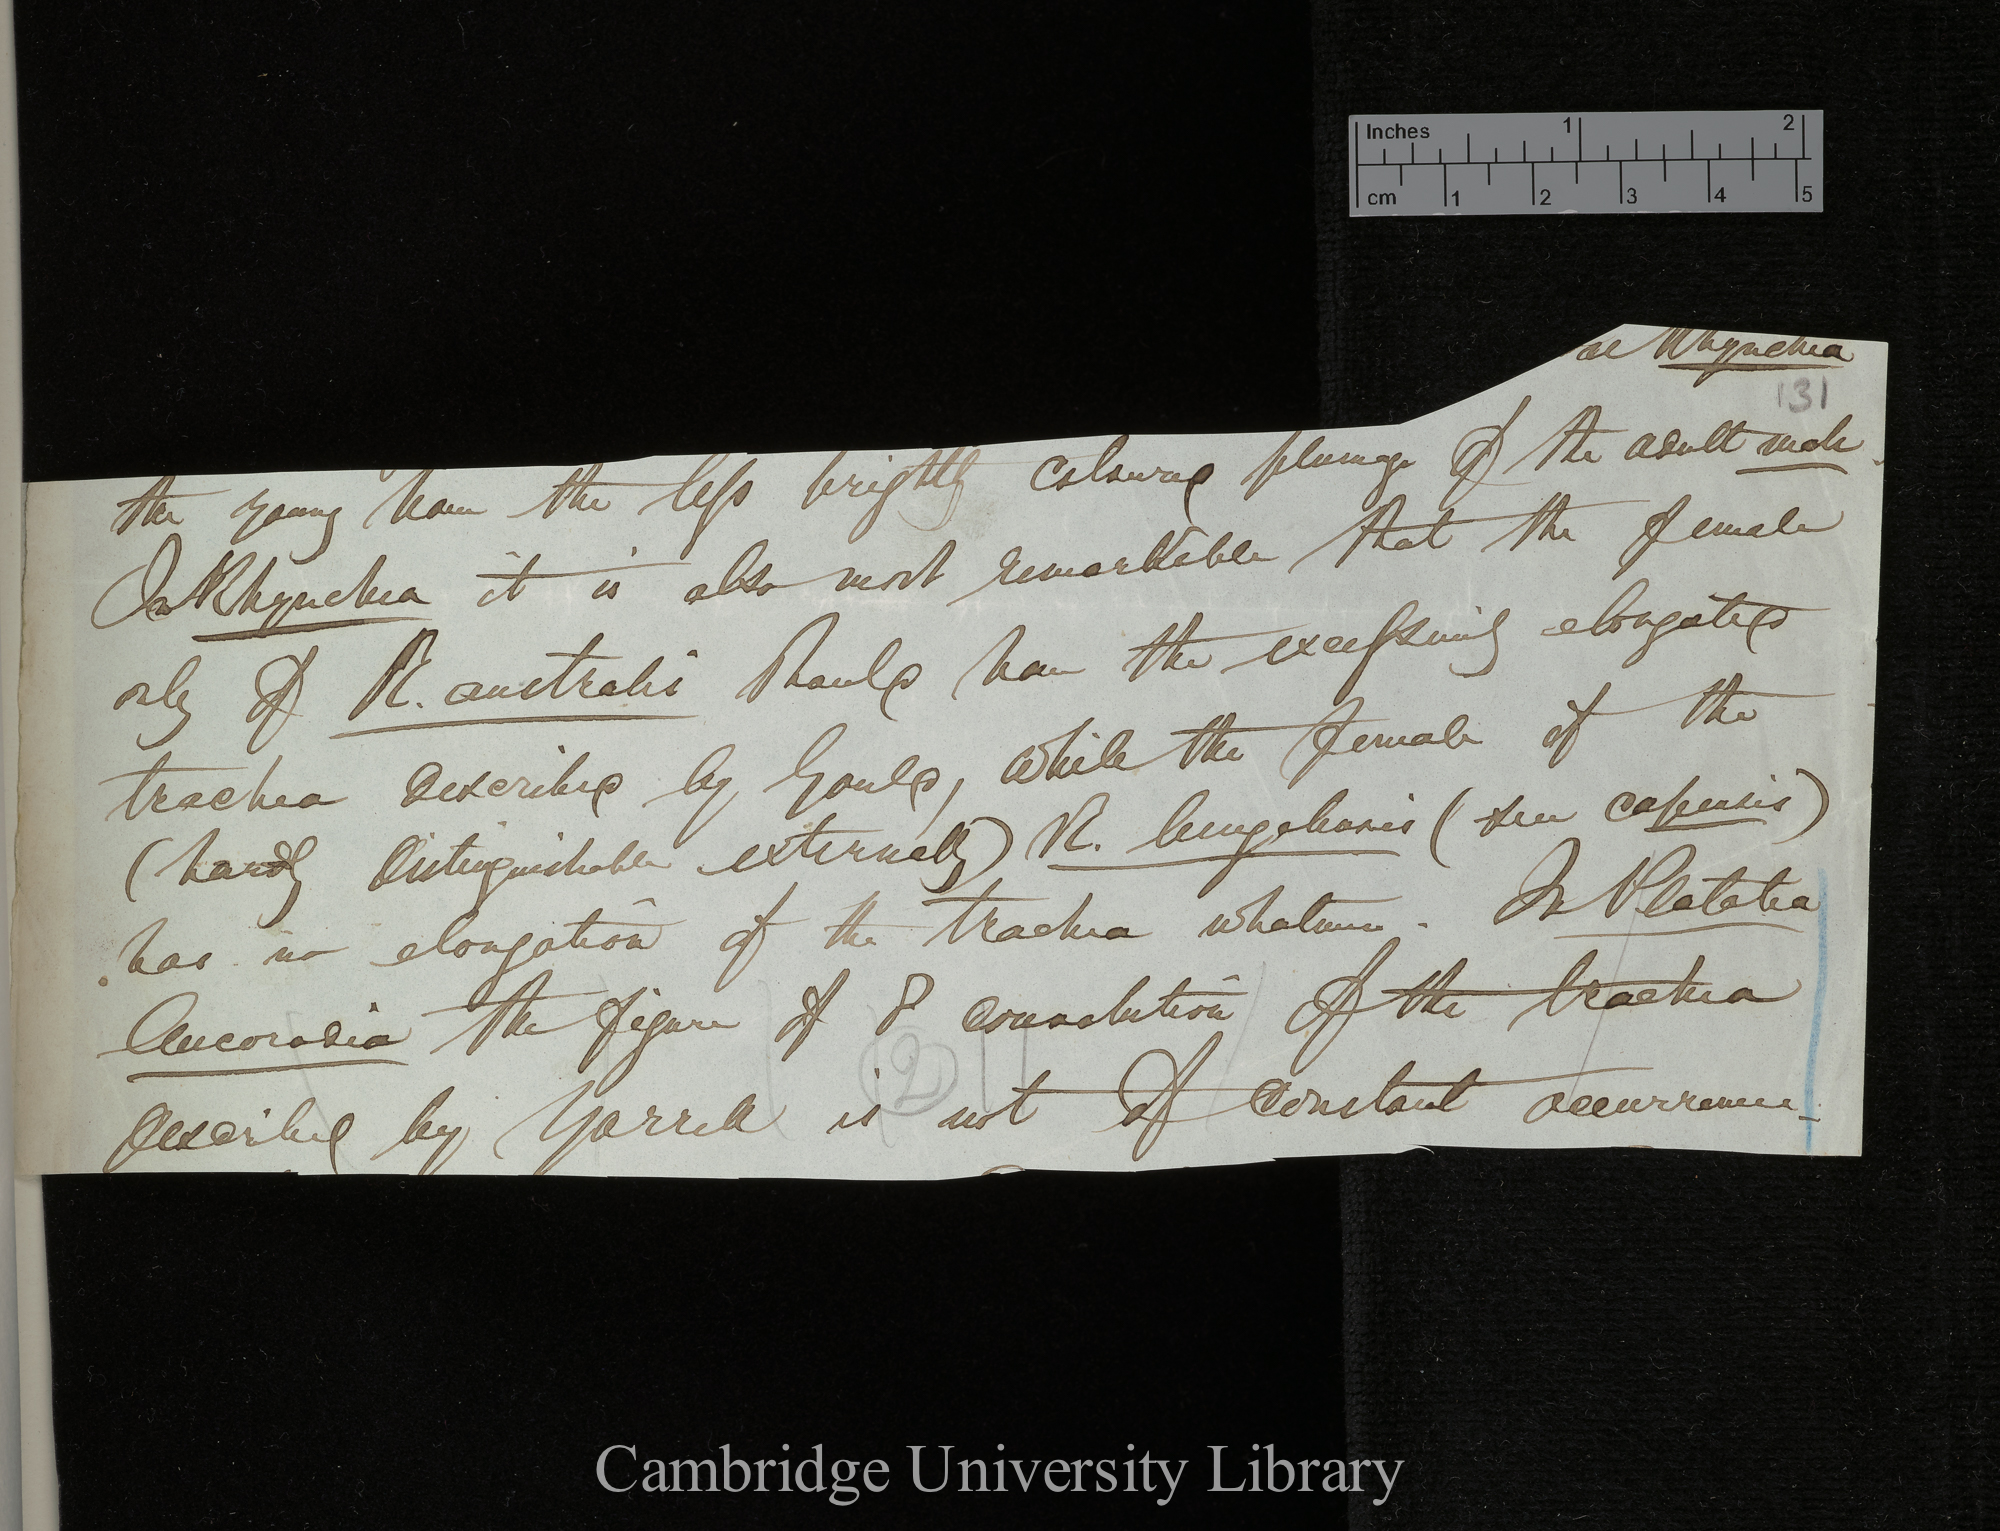 Inches 1 2
cm 1 2 3 4 5
Rhynchea
131
the young have the less brightly coloured plumage of the adult male
In Rhynchea it is also most remarkable that the female
only of R. australis should have the excessively elongated
trachea described by Gould, while the female of the
(hardly distinguishable externally) R. bengalensis (seu capensis)
has no elongation of the trachea whatever. In Platalea
leucorodia the figure of 8 convolution of the trachea
described by Yarrell is not of constant occurrence.
(2)
Cambridge University Library